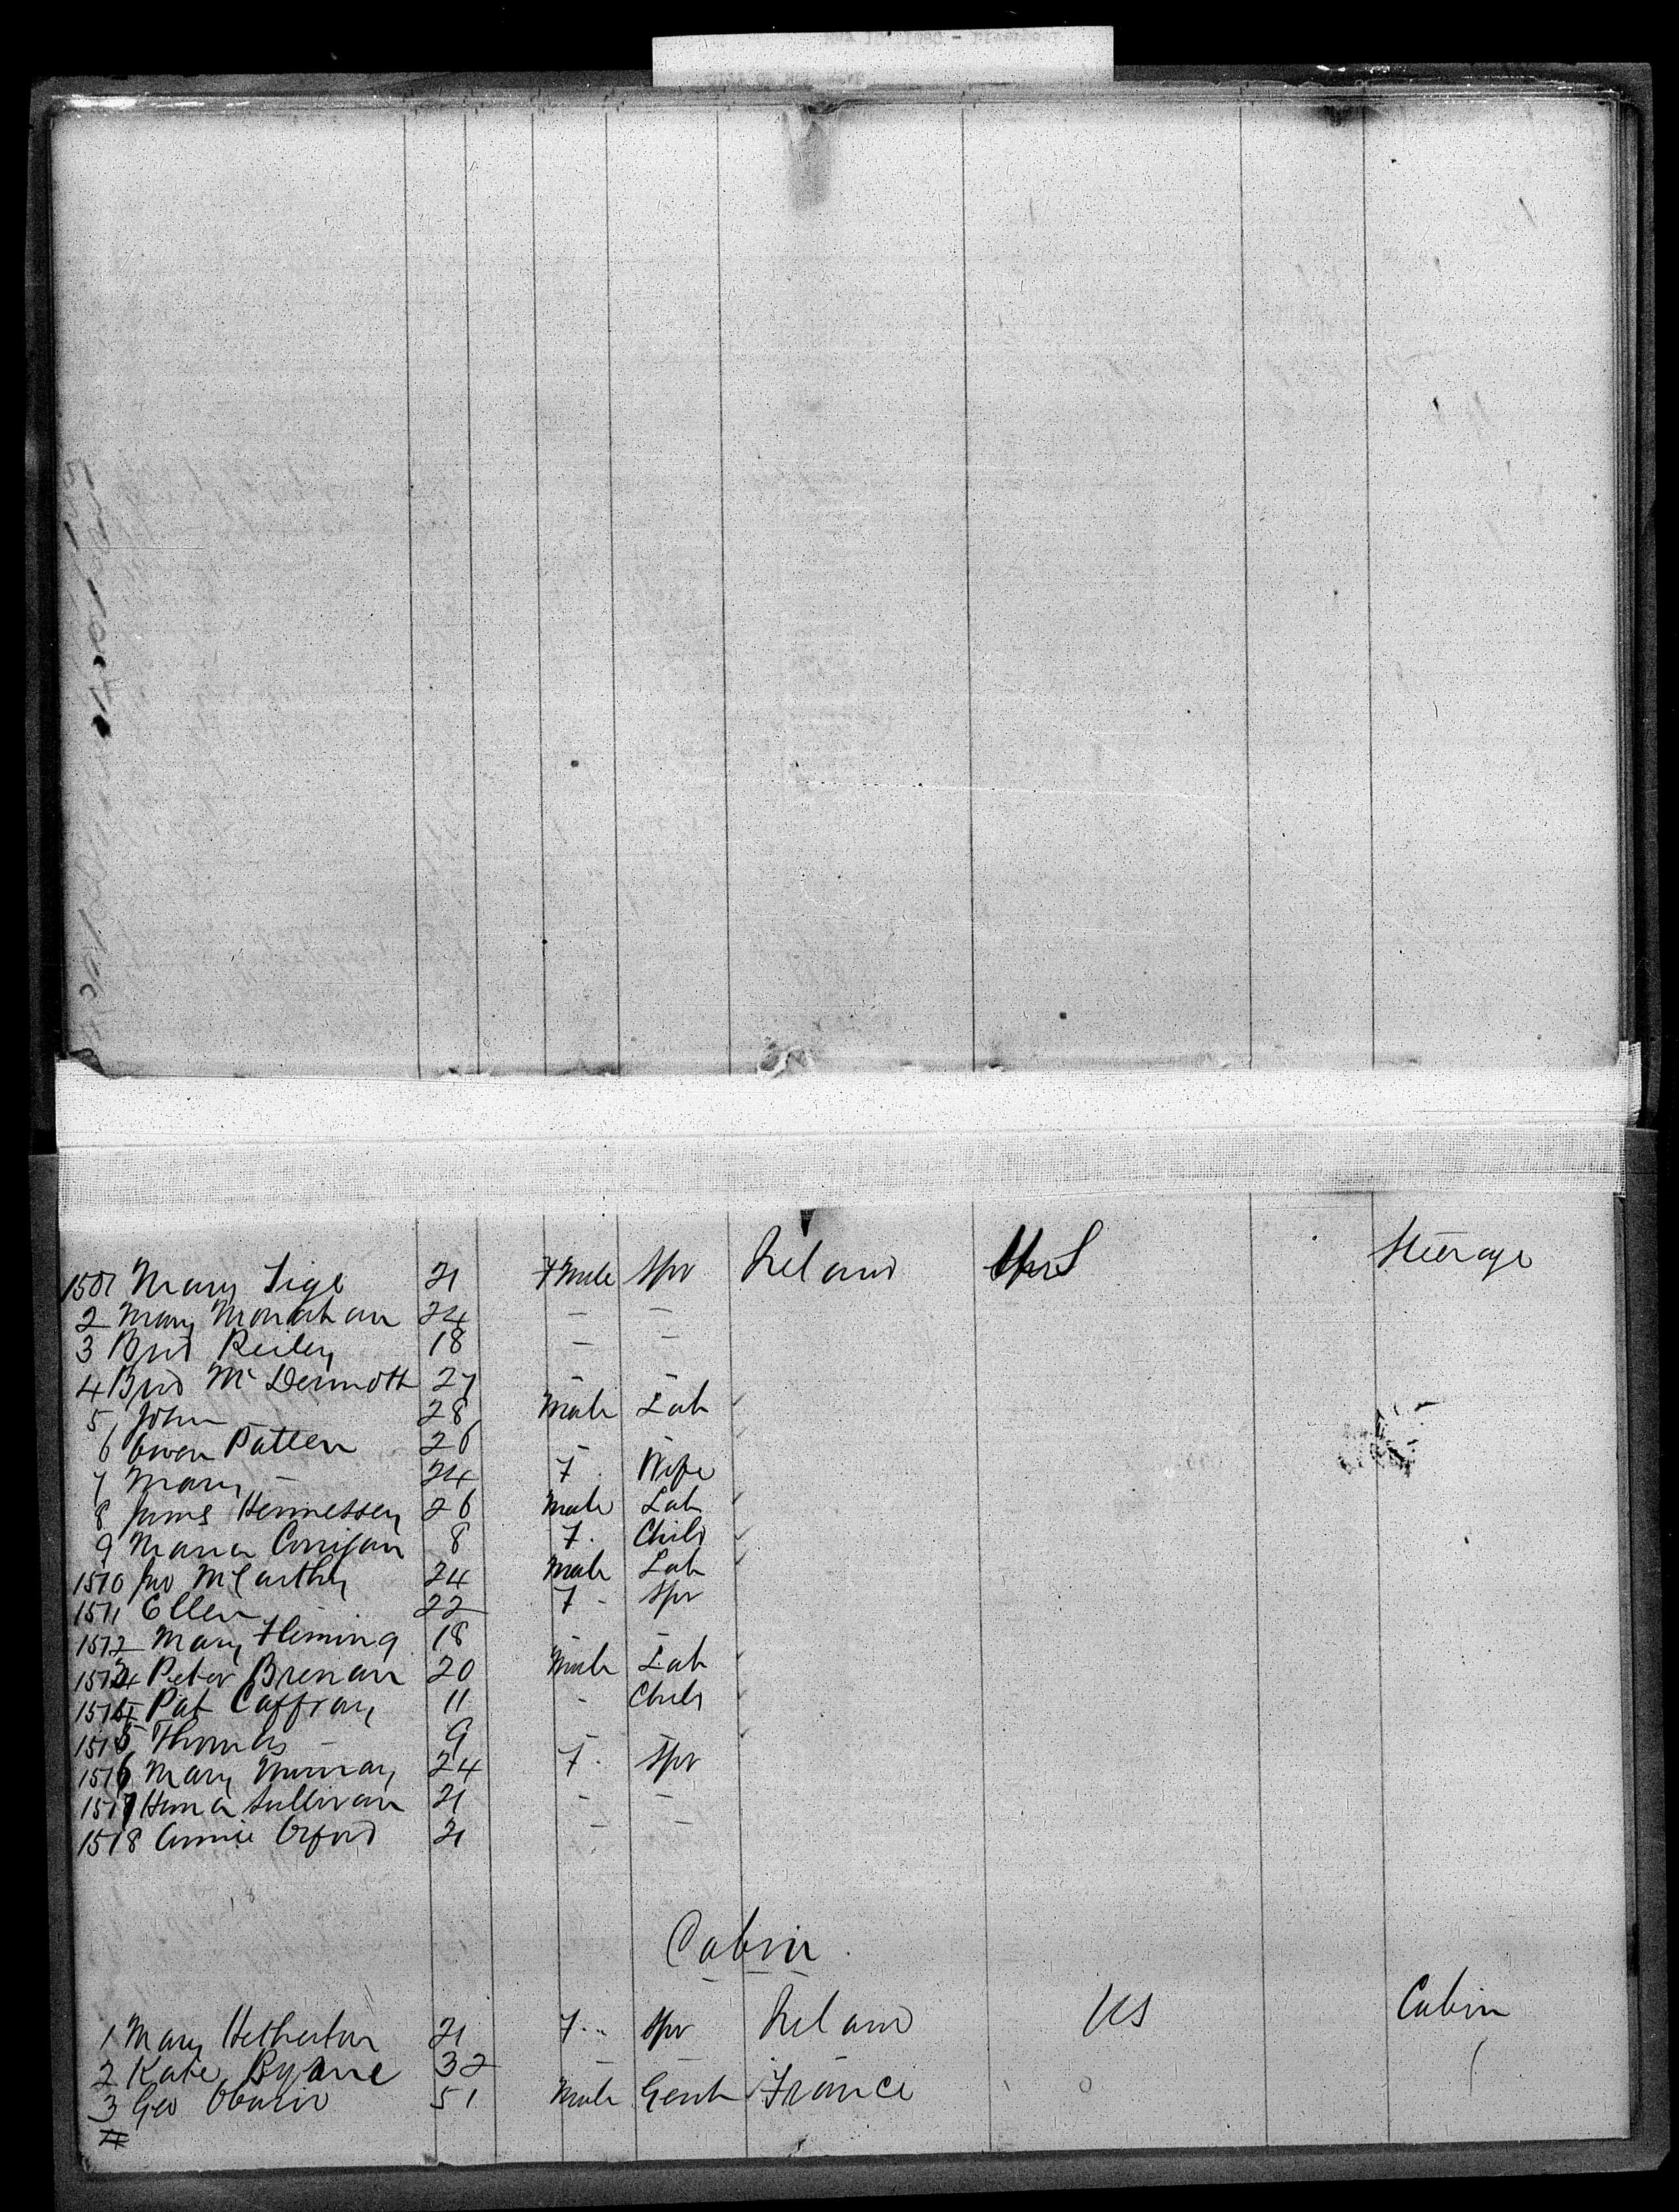 1501 Mary Tige 21 Fmale Spr Ireland US Steerage
2 Mary Monahan 24 – –
3 Brid Reiley 18 – –
4 Brid McDermott 27 – –
5 John 28 Male Lab
6 Owen Patten 26 – –
7 Mary – 24 F. Wife
8 James Hennessey 26 Male Lab
9 Maria Corrigan 8 F. Child
1510 Jno McCarthy 24 Male Lab
1511 Ellen 22 F – Spr
1512 Mary Fleming 18 – –
Peter Brenan 20 Male Lab
Pat Caffray 11 - Child
1515 Thomas – 9
1516 Mary Murray 24 F. Spr
1517 Sullivan 21 – –
1518 Annie Orford 21 – –
Cabin
1 Mary Hetherton 21 F.. Spr Ireland US Cabin
2 Kate Byrne 32 – –
3 Geo 51 Male Gent France
4